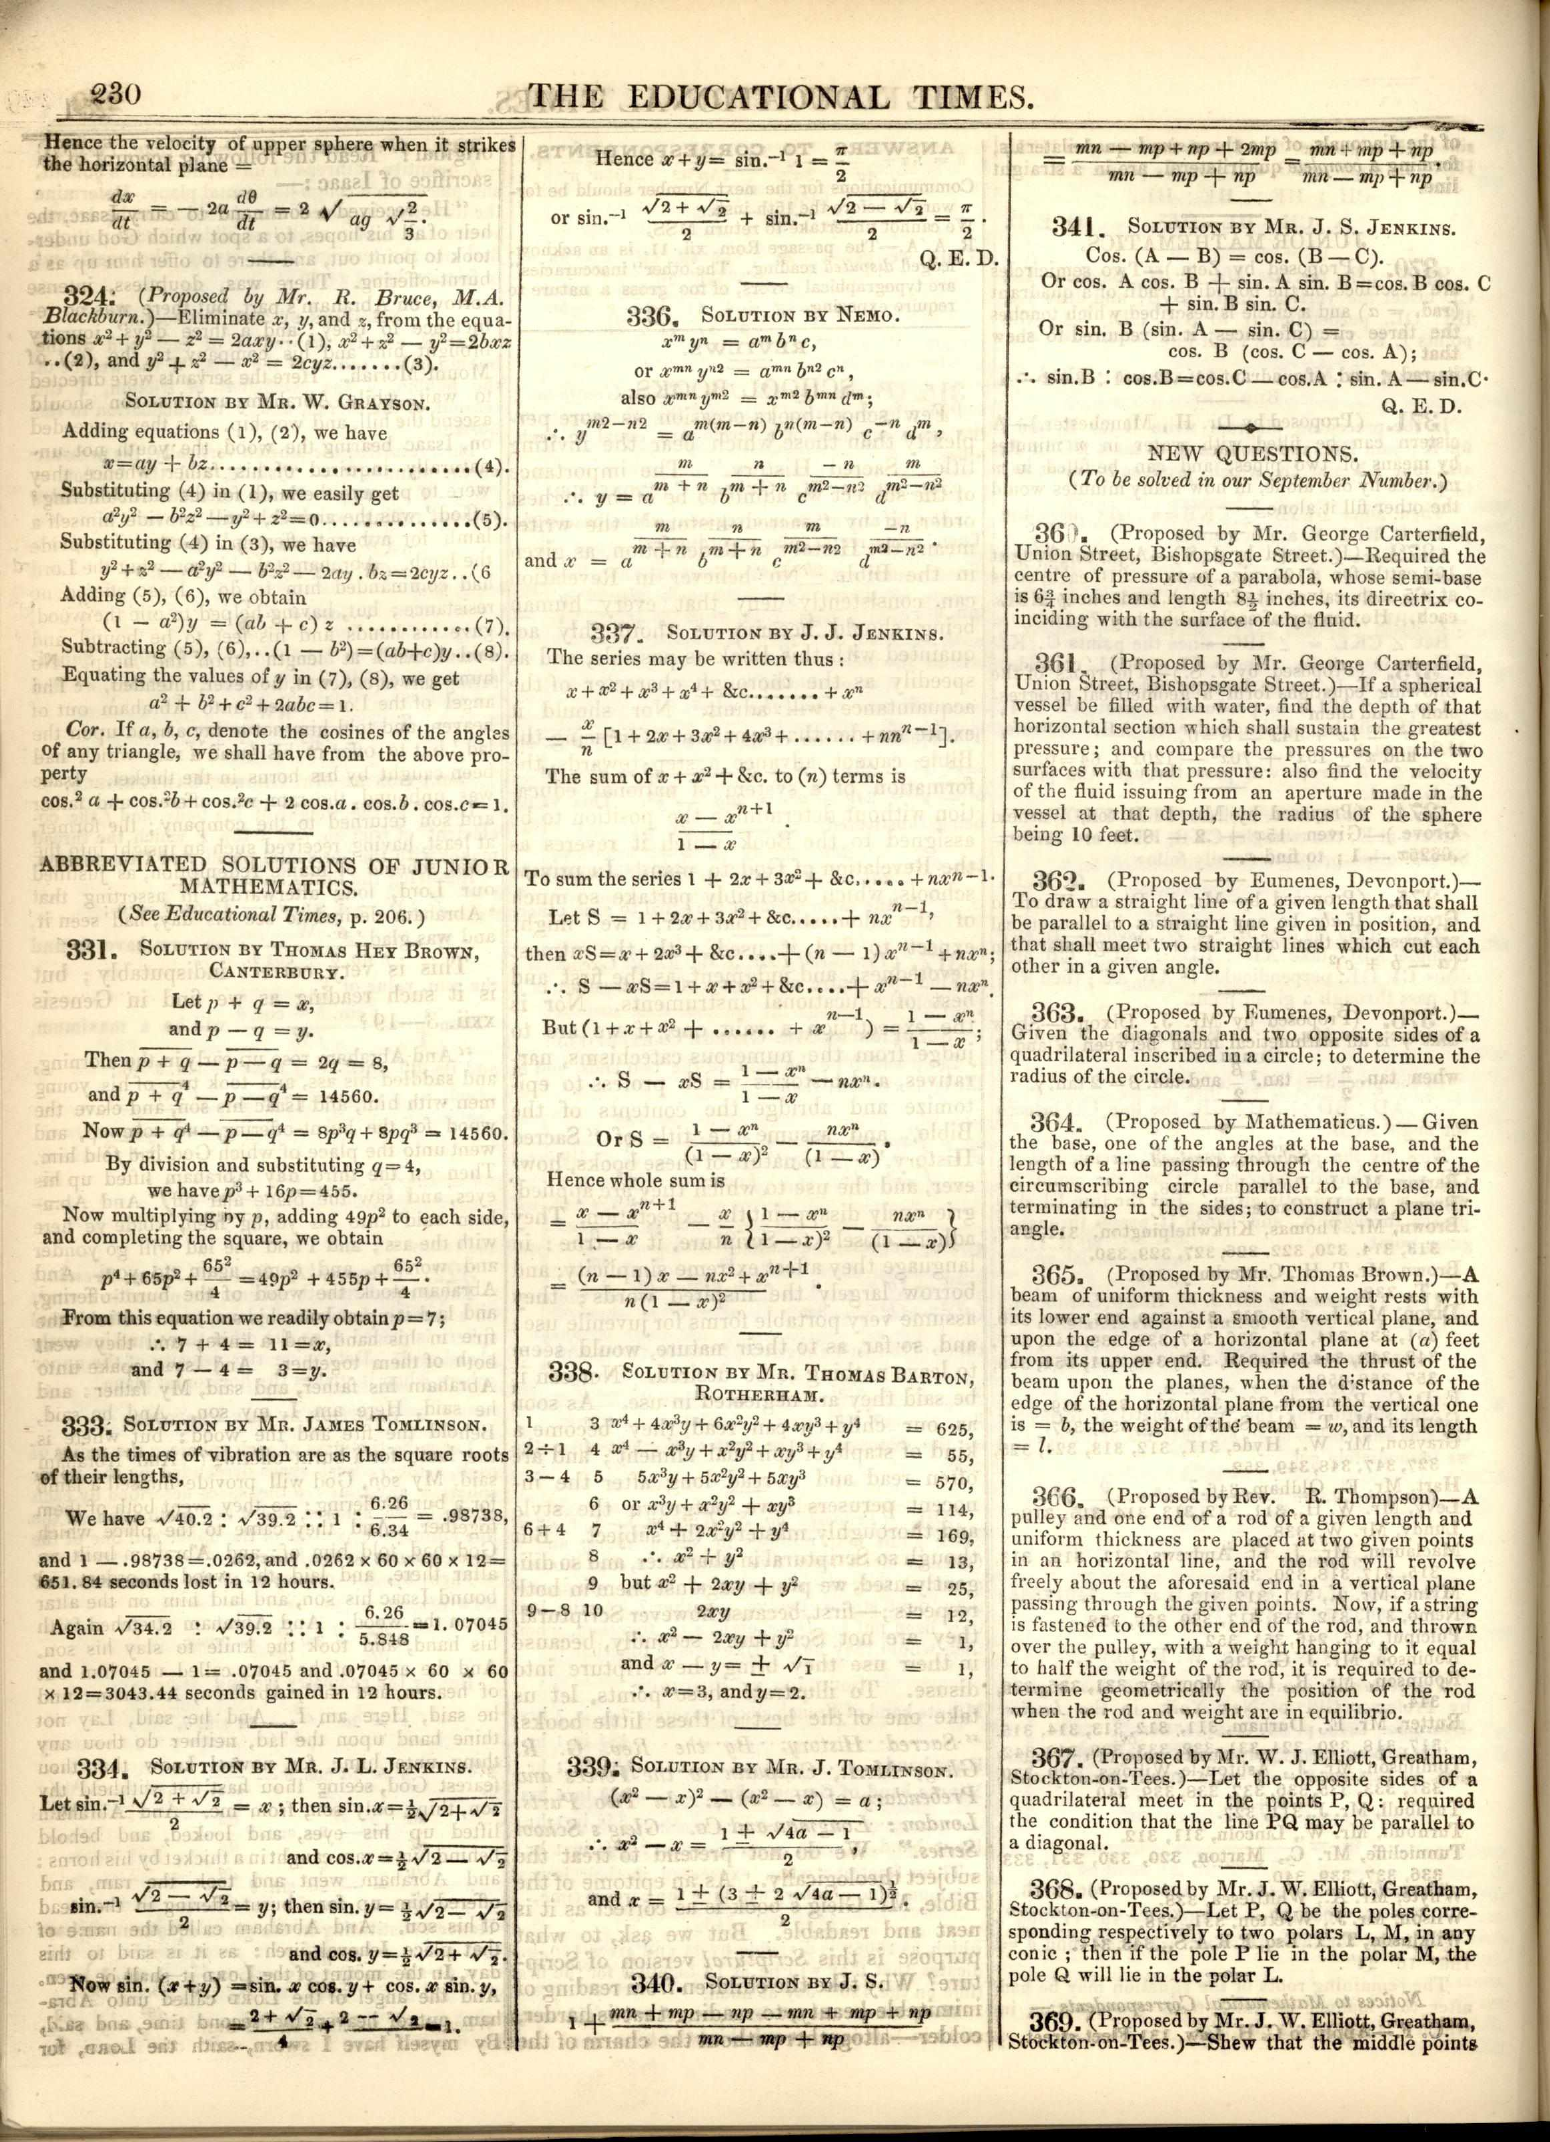 230
THE EDUCATIONAL TIMES.
Hence the velocity of upper sphere when it strikes
the horizontal plane =
dx/dt = — 2a dθ/dt = 2 √ ag √ 2/3.
324. (Proposed by Mr. R. Bruce, M.A.
Blackburn.)—Eliminate x, y, and z, from the equa-
tions x² + y² — z² = 2axy··(1), x² + z² — y² = 2bxz
..(2), and y² + z² — x² = 2cyz.......(3).
SOLUTION BY MR. W. GRAYSON.
Adding equations (1), (2), we have
x=ay + bz........................(4).
Substituting (4) in (1), we easily get
a²y² — b²z² —y² + z²=0..............(5).
Substituting (4) in (3), we have
y² + z² — a²y² — b²z² — 2ay . bz=2cyz..(6
Adding (5), (6), we obtain
(1 — a²)y = (ab + c) z ............(7).
Subtracting (5), (6),..(1 — b²)=(ab+c)y..(8).
Equating the values of y in (7), (8), we get
a² + b² + c² + 2abc=1.
Cor. If a, b, c, denote the cosines of the angles
of any triangle, we shall have from the above pro-
perty
cos.² a + cos.²b + cos.²c + 2 cos.a. cos.b. cos.c=1.
ABBREVIATED SOLUTIONS OF JUNIOR
MATHEMATICS.
(See Educational Times, p. 206.)
331. SOLUTION BY THOMAS HEY BROWN,
CANTERBURY.
Let p + q = x,
and p — q = y.
Then p + q — p — q = 2q = 8,
and p + q⁴ — p — q⁴ = 14560.
Now p + q⁴ — p — q⁴ = 8p³q + 8pq³ = 14560.
By division and substituting q=4,
we have p³ + 16p=455.
Now multiplying by p, adding 49p² to each side,
and completing the square, we obtain
p⁴ + 65p² + 65²/4 = 49p² + 455p + 65²/4.
From this equation we readily obtain p=7;
∴ 7 + 4 = 11=x,
and 7 — 4 = 3=y.
333. SOLUTION BY MR. JAMES TOMLINSON.
As the times of vibration are as the square roots
of their lengths,
We have √40.2 : √39.2 :: 1 : 6.26/6.34 = .98738,
and 1 — .98738=.0262, and .0262 × 60 × 60 × 12=
651.84 seconds lost in 12 hours.
Again √34.2 : √39.2 :: 1 : 6.26/5.848 = 1. 07045
and 1.07045 — 1= .07045 and .07045 × 60 × 60
× 12=3043.44 seconds gained in 12 hours.
334. SOLUTION BY MR. J. L. JENKINS.
Let sin.⁻¹ √2 + √2/2 = x; then sin.x=½√2+√2
and cos.x=½√2 — √2
sin.⁻¹ √2 — √2/2 = y; then sin. y=½√2— √2
and cos. y=½√2+ √2.
Now sin. (x+y) =sin. x cos. y+ cos. x sin. y,
= 2+ √2/4 + 2 — √2/4 =1.
Hence x+y= sin.⁻¹ 1 = π/2
or sin.⁻¹ √2 + √2/2 + sin.⁻¹ √2 — √2/2 = π/2.
Q. E. D.
336. SOLUTION BY NEMO.
xᵐ yⁿ = aᵐ bⁿ c,
or xᵐⁿ yⁿ² = aᵐⁿ bⁿ² cⁿ,
also xᵐⁿ yᵐ² = xᵐ² bᵐⁿ dᵐ;
∴ y^(m2—n2) = a^(m(m—n)) b^(n(m—n)) c^(—n) d^m,
∴ y = a^(m/(m + n)) b^(n/(m + n)) c^(— n/(m2—n2)) d^(m/(m2—n2))
and x = a^(m/(m + n)) b^(n/(m + n)) c^(m/(m2—n2)) d^(—n/(m2—n2)).
337. SOLUTION BY J. J. JENKINS.
The series may be written thus:
x + x² + x³ + x⁴ + &c....... + xⁿ
— x/n [1 + 2x + 3x² + 4x³ + ...... + nnⁿ⁻¹].
The sum of x + x² + &c. to (n) terms is
(x — xⁿ⁺¹)/(1 — x).
To sum the series 1 + 2x + 3x² + &c..... + nxⁿ⁻¹.
Let S = 1 + 2x + 3x² + &c..... + nxⁿ⁻¹,
then xS=x + 2x³ + &c.... + (n — 1) xⁿ⁻¹ + nxⁿ;
∴ S — xS=1 + x + x² + &c.... + xⁿ⁻¹ — nxⁿ.
But (1 + x + x² + ...... + xⁿ⁻¹) = (1 — xⁿ)/(1 — x);
∴ S — xS = (1 — xⁿ)/(1 — x) — nxⁿ.
Or S = (1 — xⁿ)/(1 — x)² — nxⁿ/(1 — x).
Hence whole sum is
= (x — xⁿ⁺¹)/(1 — x) — x/n {(1 — xⁿ)/(1 — x)² — nxⁿ/(1 — x)}
= ((n — 1) x — nx² + xⁿ⁺¹)/(n (1 — x)²).
338. SOLUTION BY MR. THOMAS BARTON,
ROTHERHAM.
1 3 x⁴ + 4x³y + 6x²y² + 4xy³ + y⁴ = 625,
2÷1 4 x⁴ — x³y + x²y² + xy³ + y⁴ = 55,
3—4 5 5x³y + 5x²y² + 5xy³ = 570,
6 or x³y + x²y² + xy³ = 114,
6+4 7 x⁴ + 2x²y² + y⁴ = 169,
8 ∴ x² + y² = 13,
9 but x² + 2xy + y² = 25,
9—8 10 2xy = 12,
∴ x² — 2xy + y² = 1,
and x — y= ± √1 = 1,
∴ x=3, and y=2.
339. SOLUTION BY MR. J. TOMLINSON.
(x² — x)² — (x² — x) = a;
∴ x² — x = (1 ± √4a — 1)/2,
and x = (1 ± (3 ± 2 √4a — 1)½)/2.
340. SOLUTION BY J. S.
1 + (mn + mp — np — mn + mp + np)/(mn — mp + np)
= (mn — mp + np + 2mp)/(mn — mp + np) = (mn + mp + np)/(mn — mp + np).
341. SOLUTION BY MR. J. S. JENKINS.
Cos. (A — B) = cos. (B — C).
Or cos. A cos. B + sin. A sin. B=cos. B cos. C
+ sin. B sin. C.
Or sin. B (sin. A — sin. C) =
cos. B (cos. C — cos. A);
∴ sin.B : cos.B=cos.C—cos.A : sin. A—sin.C·
Q. E. D.
NEW QUESTIONS.
(To be solved in our September Number.)
360. (Proposed by Mr. George Carterfield,
Union Street, Bishopsgate Street.)—Required the
centre of pressure of a parabola, whose semi-base
is 6¾ inches and length 8½ inches, its directrix co-
inciding with the surface of the fluid.
361. (Proposed by Mr. George Carterfield,
Union Street, Bishopsgate Street.)—If a spherical
vessel be filled with water, find the depth of that
horizontal section which shall sustain the greatest
pressure; and compare the pressures on the two
surfaces with that pressure: also find the velocity
of the fluid issuing from an aperture made in the
vessel at that depth, the radius of the sphere
being 10 feet.
362. (Proposed by Eumenes, Devonport.)—
To draw a straight line of a given length that shall
be parallel to a straight line given in position, and
that shall meet two straight lines which cut each
other in a given angle.
363. (Proposed by Eumenes, Devonport.)—
Given the diagonals and two opposite sides of a
quadrilateral inscribed in a circle; to determine the
radius of the circle.
364. (Proposed by Mathematicus.)—Given
the base, one of the angles at the base, and the
length of a line passing through the centre of the
circumscribing circle parallel to the base, and
terminating in the sides; to construct a plane tri-
angle.
365. (Proposed by Mr. Thomas Brown.)—A
beam of uniform thickness and weight rests with
its lower end against a smooth vertical plane, and
upon the edge of a horizontal plane at (a) feet
from its upper end. Required the thrust of the
beam upon the planes, when the distance of the
edge of the horizontal plane from the vertical one
is = b, the weight of the beam = w, and its length
= l.
366. (Proposed by Rev. R. Thompson)—A
pulley and one end of a rod of a given length and
uniform thickness are placed at two given points
in an horizontal line, and the rod will revolve
freely about the aforesaid end in a vertical plane
passing through the given points. Now, if a string
is fastened to the other end of the rod, and thrown
over the pulley, with a weight hanging to it equal
to half the weight of the rod, it is required to de-
termine geometrically the position of the rod
when the rod and weight are in equilibrio.
367. (Proposed by Mr. W. J. Elliott, Greatham,
Stockton-on-Tees.)—Let the opposite sides of a
quadrilateral meet in the points P, Q: required
the condition that the line PQ may be parallel to
a diagonal.
368. (Proposed by Mr. J. W. Elliott, Greatham,
Stockton-on-Tees.)—Let P, Q be the poles corre-
sponding respectively to two polars L, M, in any
conic; then if the pole P lie in the polar M, the
pole Q will lie in the polar L.
369. (Proposed by Mr. J. W. Elliott, Greatham,
Stockton-on-Tees.)—Shew that the middle points